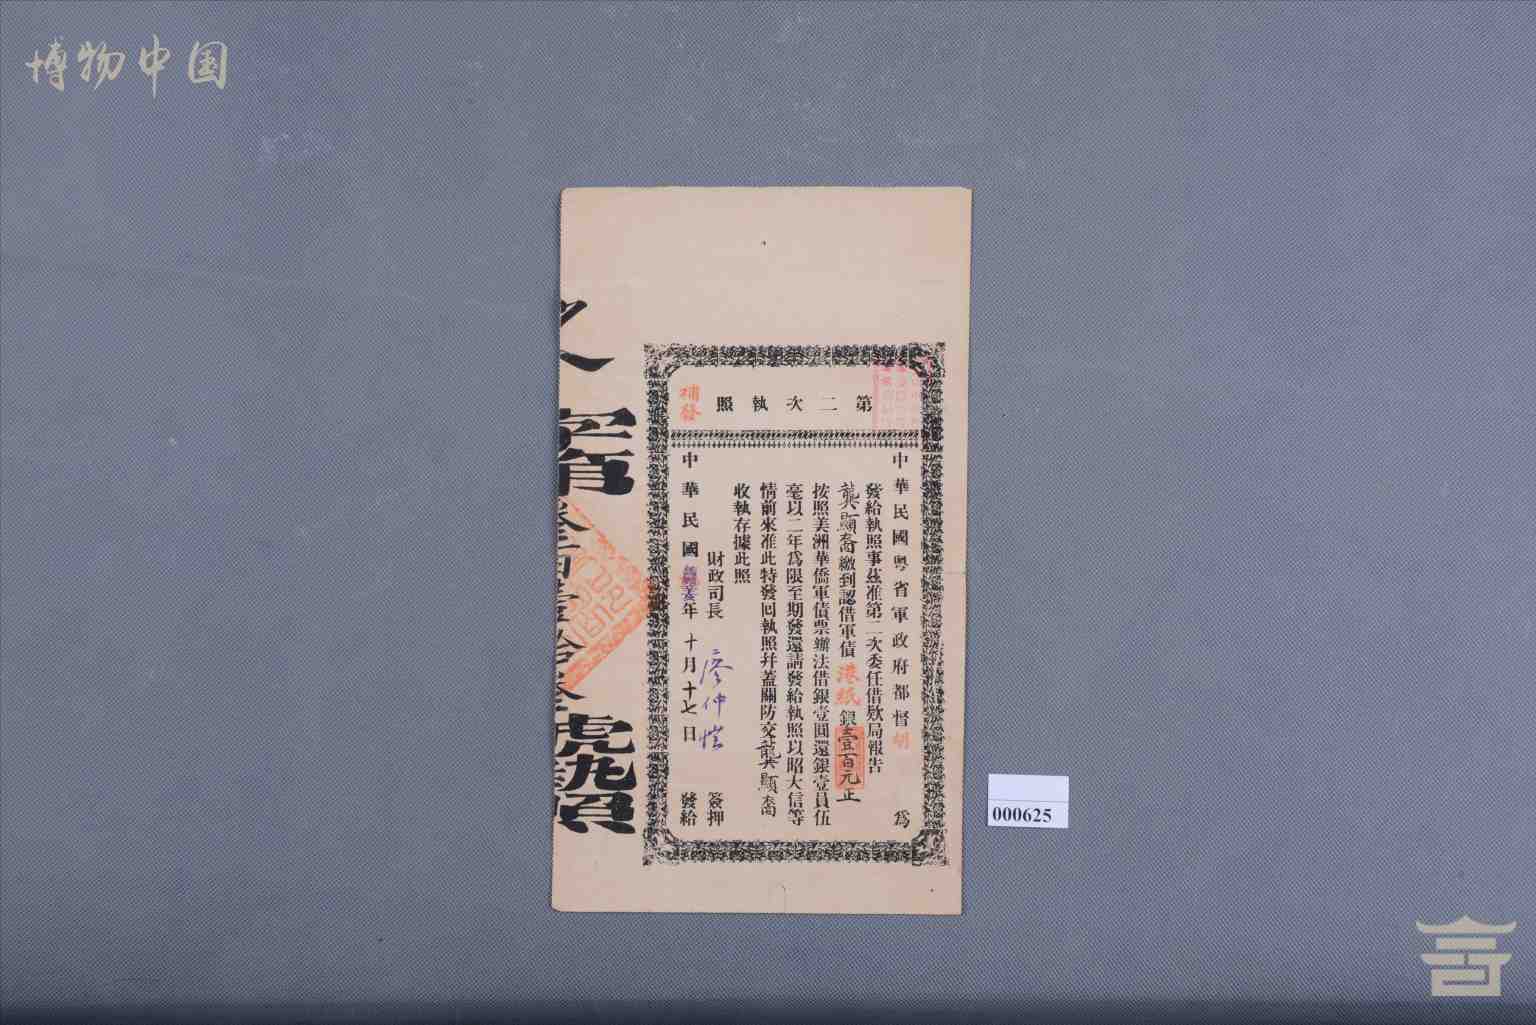 博物中国
第二次執照
補發
中華民國粤省軍政府都督胡 為
發給執照事茲准第二次委任借欵局報告
龔顯裔繳到認借軍債港紙銀壹百元正
按照美洲華僑軍債票辦法借銀壹圓還銀壹員伍
毫以二年為限至期發還請發給執照以昭大信等
情前來准此特發囘執照幷蓋關防交龔顯裔
收執存據此照
財政司長 廖仲愷 簽押
中華民國 年十月十七日 發給
字第叁百壹拾叁號執照
000625